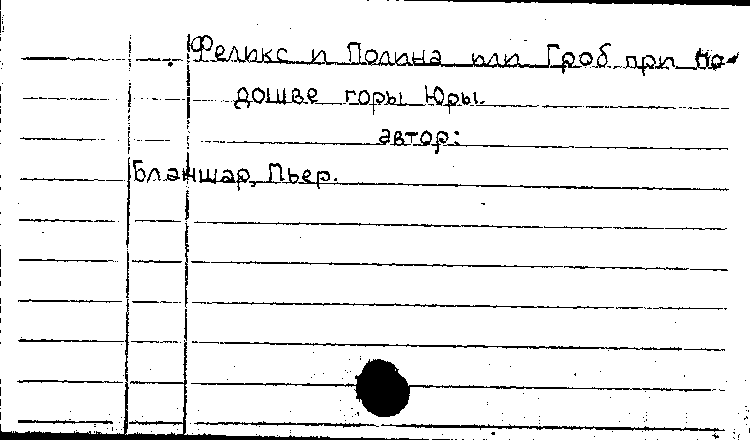 Феликс и Полина или Гроб при по-
дошве горы Юры.
автор:
Бланшар, Пьер.